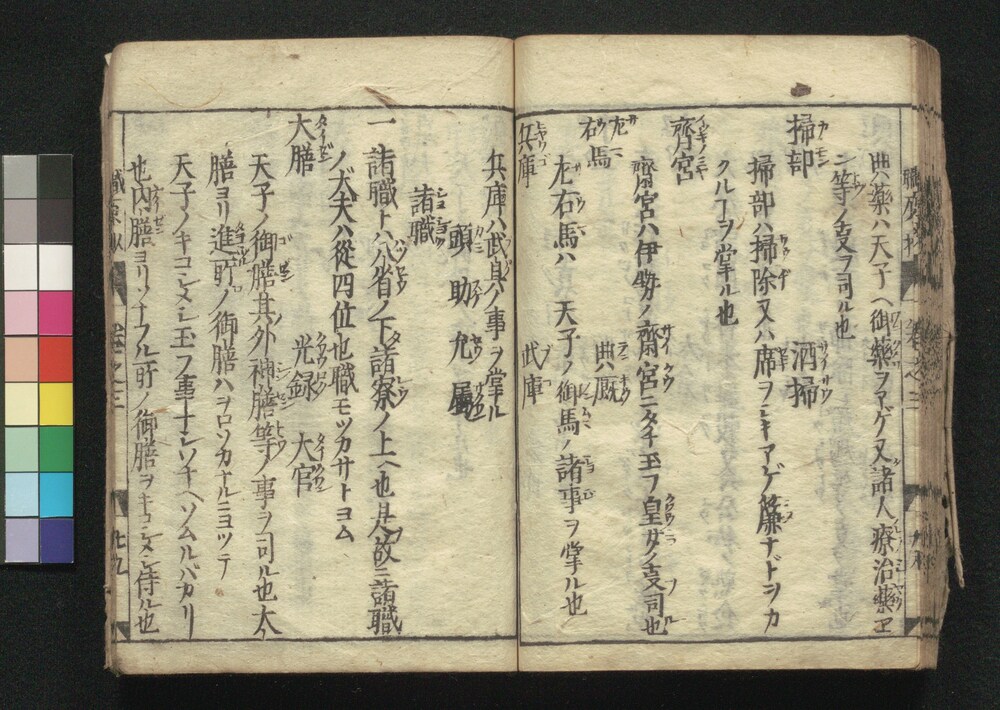 典藥ハ天子ヘ御藥ヲアゲ又諸人療治藥ヱ
ニ等ノ支ヲ司ル也
掃部 酒掃
掃部ハ掃除又ハ席ヲシキアゲ簾ナドヲカ
クルヿヲ掌ル也
齊宮
齋宮ハ伊勢ノ齋宮ニタチ玉フ皇女ノ支司ル也
左右馬 典厩
左右馬ハ 天子ノ御馬ノ諸事ヲ掌ル也
兵庫 武庫
兵庫ハ武具ノ事ヲ掌ル
頭 助 允 屬
諸職
一 諸職トハ八省ノ下諸寮ノ上ヘ也是故ニ諸職
ノ大夫ハ從四位也職モツカサトヨム
大膳 光録 大官
天子ノ御膳其外神膳等ノ事ヲ司ル也大
膳ヨリ進所ノ御膳ハヲロソカナルニヨツテ
天子ノキコシメシ玉フ事ナシソナヘソムルバカリ
也内膳ヨリソナフル所ノ御膳ヲキコシメシ侍ル也
職原
卷之三
廿九